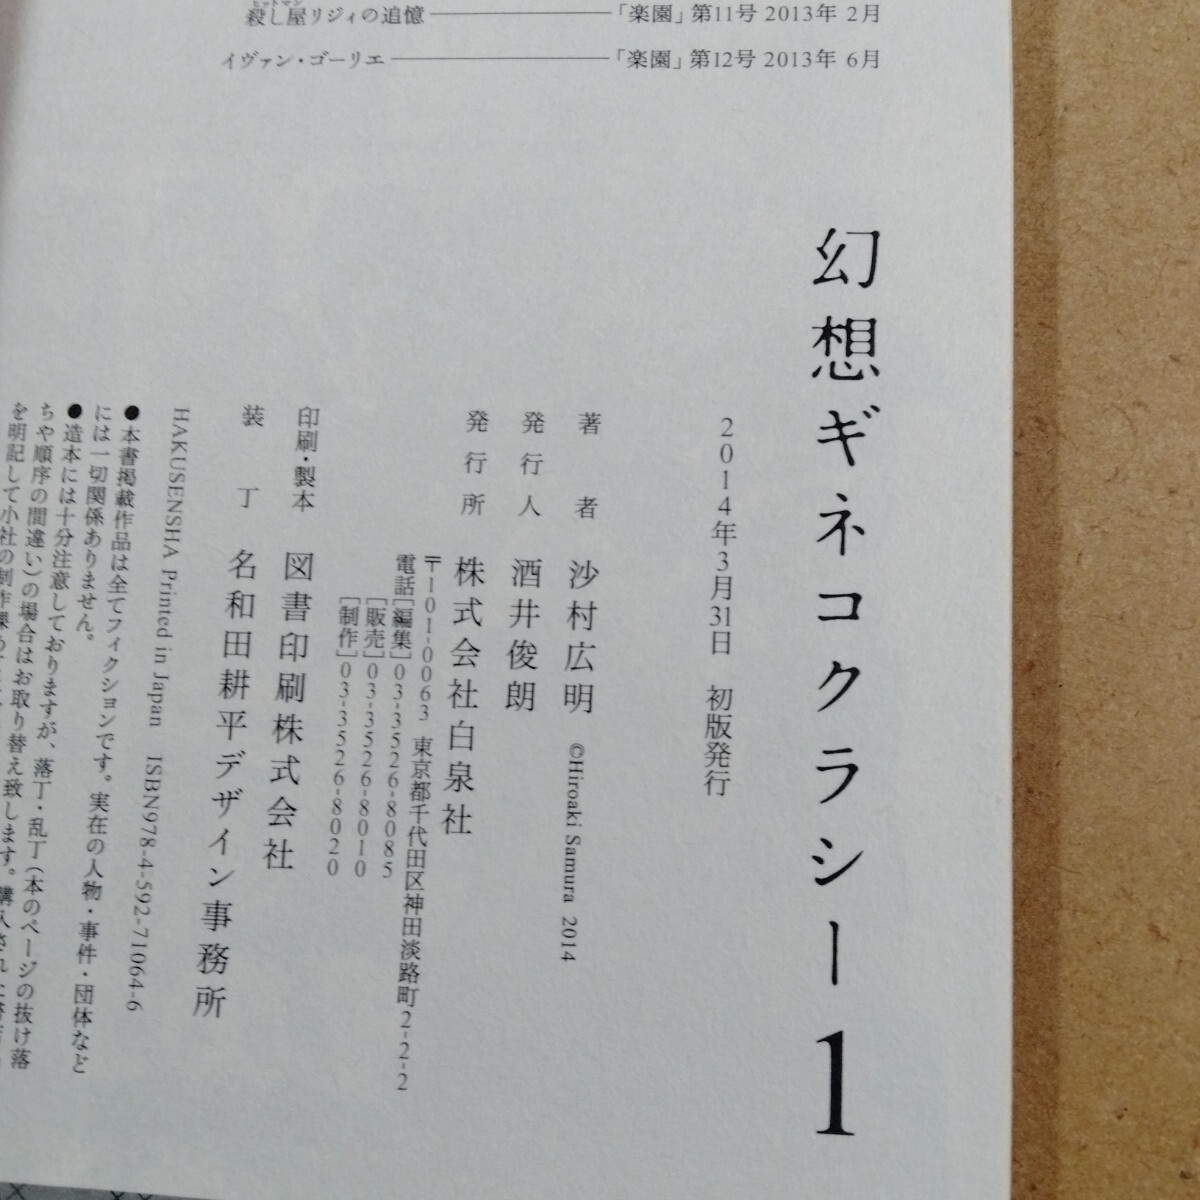 殺し屋リジィの追憶 ―――――――「楽園」第11号 2013年 2月
イヴァン・ゴーリエ ―――――――「楽園」第12号 2013年 6月
幻想ギネコクラシー1
2014年3月31日 初版発行
著者 沙村広明 ©Hiroaki Samura 2014
発行人 酒井俊朗
発行所 株式会社白泉社
〒101-0063 東京都千代田区神田淡路町2-2-2
電話[編集]03-3526-8085
[販売]03-3526-8010
[制作]03-3526-8020
印刷・製本 図書印刷株式会社
装丁 名和田耕平デザイン事務所
HAKUSENSHA Printed in Japan ISBN978-4-592-71064-6
●本書掲載作品は全てフィクションです。実在の人物・事件・団体など
には一切関係ありません。
●造本には十分注意しておりますが、落丁・乱丁(本のページの抜け落
ちや順序の間違い)の場合はお取り替え致します。購入された
を明記して小社の制作課